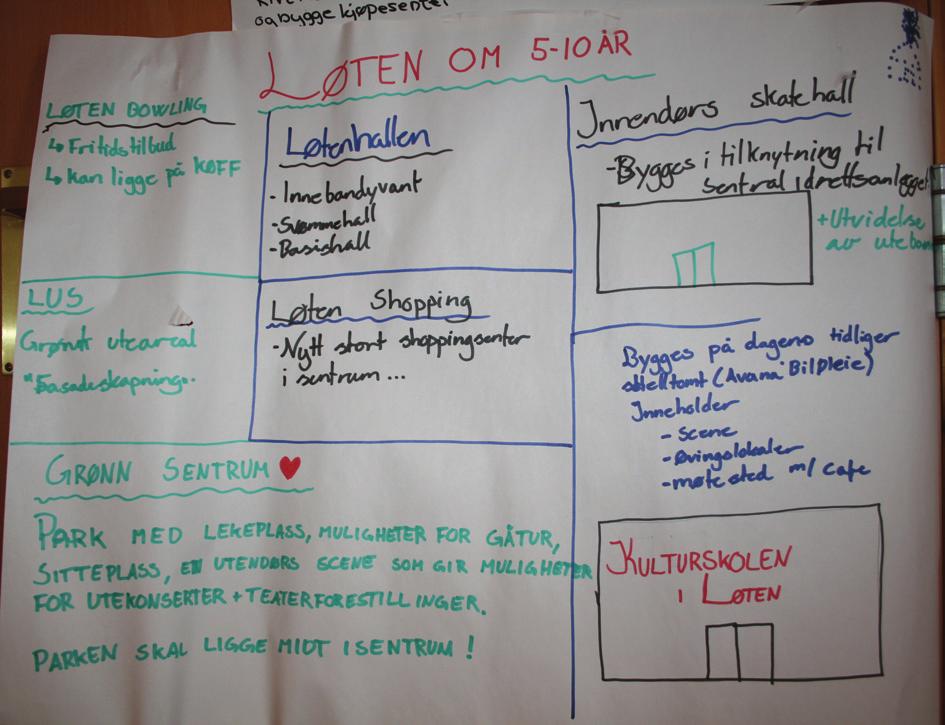 og bygge kjøpesenter
LØTEN OM 5-10 ÅR
LØTEN BOWLING
↳ Fritidstilbud
↳ kan ligge på KOFF
Løtenhallen
- Innebandyvant
- Svømmehall
- Basishall
Innendørs skatehall
- Bygges i tilknytning til
sentral idrettsanlegget
+ Utvidelse
av uteban
LUS
Grønt uteareal
"Fasadeskapning"
Løten Shopping
- Nytt stort shoppingsenter
i sentrum ...
Bygges på dagens tidliger
(Avana Bilpleie)
Inneholder
- Scene
- Øvingslokaler
- møtested m/ cafe
KULTURSKOLEN
I LØTEN
GRØNN SENTRUM ♥
PARK MED LEKEPLASS, MULIGHETER FOR GÅTUR,
SITTEPLASS, EN UTENDØRS SCENE SOM GIR MULIGHETER
FOR UTEKONSERTER + TEATERFORESTILLINGER.
PARKEN SKAL LIGGE MIDT I SENTRUM !